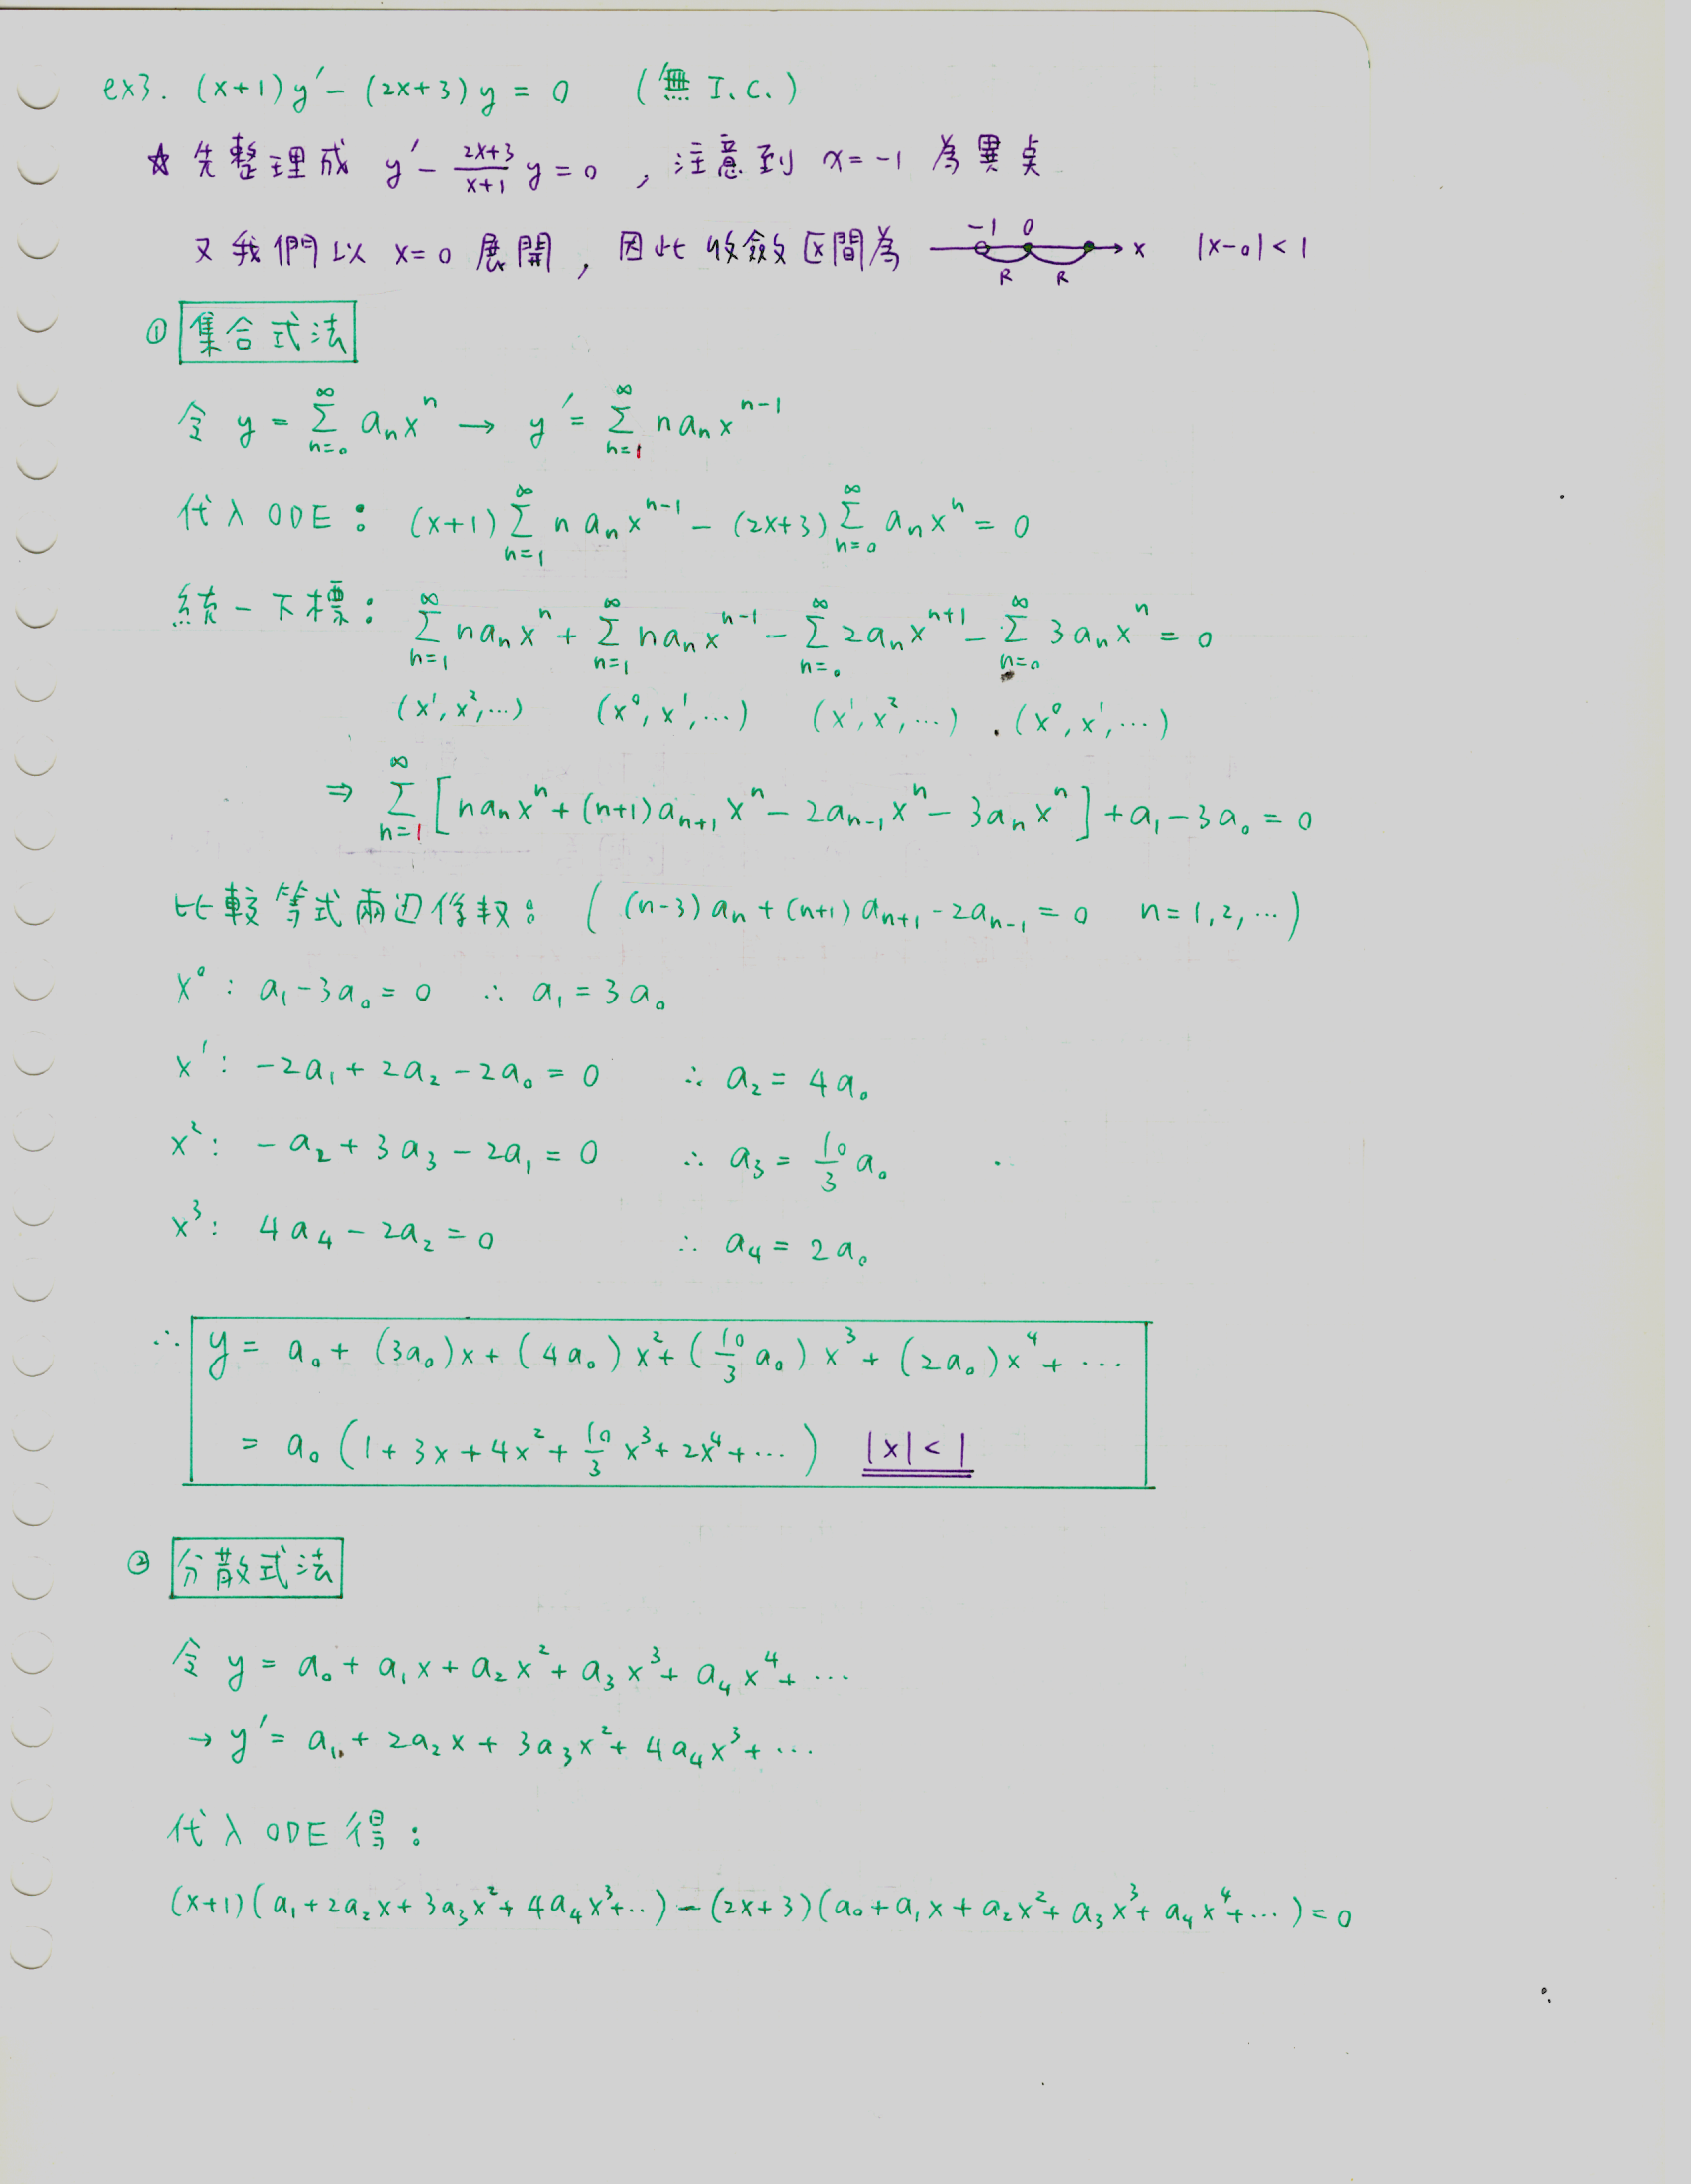 ex3. (x+1)y′ − (2x+3)y = 0 (無 I.C.)
☆ 先整理成 y′ − \frac{2x+3}{x+1} y = 0 , 注意到 x = −1 為異點
又我們以 x=0 展開 , 因此收斂区間為 −1 0 R R x |x−0| < 1
① 集合式法
令 y = \sum_{n=0}^{∞} a_n x^n → y′ = \sum_{n=1}^{∞} n a_n x^{n−1}
代入 ODE : (x+1) \sum_{n=1}^{∞} n a_n x^{n−1} − (2x+3) \sum_{n=0}^{∞} a_n x^n = 0
統一下標 : \sum_{n=1}^{∞} n a_n x^n + \sum_{n=1}^{∞} n a_n x^{n−1} − \sum_{n=0}^{∞} 2a_n x^{n+1} − \sum_{n=0}^{∞} 3a_n x^n = 0
(x^1, x^2, ...) (x^0, x^1, ...) (x^1, x^2, ...) (x^0, x^1, ...)
⇒ \sum_{n=1}^{∞} [ n a_n x^n + (n+1) a_{n+1} x^n − 2a_{n−1} x^n − 3a_n x^n ] + a_1 − 3a_0 = 0
比較等式兩边係数 : ( (n−3) a_n + (n+1) a_{n+1} − 2a_{n−1} = 0 n = 1, 2, ... )
x^0 : a_1 − 3a_0 = 0 ∴ a_1 = 3a_0
x^1 : −2a_1 + 2a_2 − 2a_0 = 0 ∴ a_2 = 4a_0
x^2 : −a_2 + 3a_3 − 2a_1 = 0 ∴ a_3 = \frac{10}{3} a_0
x^3 : 4a_4 − 2a_2 = 0 ∴ a_4 = 2a_0
∴ y = a_0 + (3a_0)x + (4a_0)x^2 + (\frac{10}{3} a_0)x^3 + (2a_0)x^4 + ...
= a_0 (1 + 3x + 4x^2 + \frac{10}{3} x^3 + 2x^4 + ...) |x| < 1
② 分散式法
令 y = a_0 + a_1 x + a_2 x^2 + a_3 x^3 + a_4 x^4 + ...
→ y′ = a_1 + 2a_2 x + 3a_3 x^2 + 4a_4 x^3 + ...
代入 ODE 得 :
(x+1)(a_1 + 2a_2 x + 3a_3 x^2 + 4a_4 x^3 + ..) − (2x+3)(a_0 + a_1 x + a_2 x^2 + a_3 x^3 + a_4 x^4 + ...) = 0